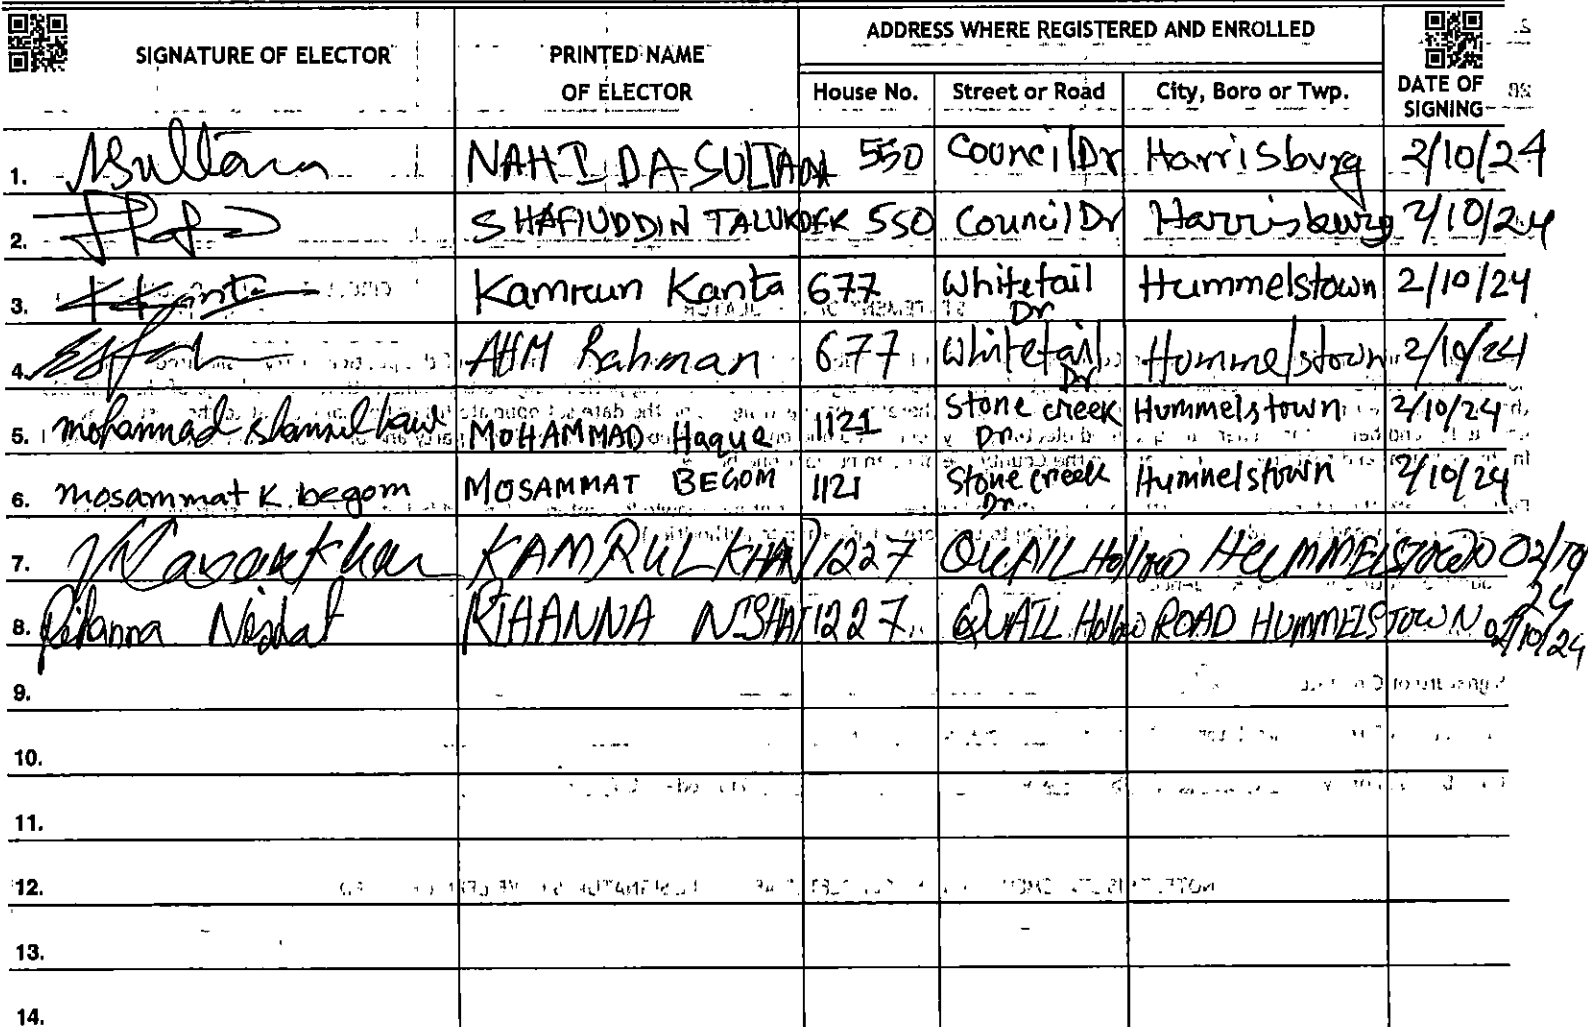 ADDRESS WHERE REGISTERED AND ENROLLED
SIGNATURE OF ELECTOR PRINTED NAME OF ELECTOR House No. Street or Road City, Boro or Twp. DATE OF SIGNING
1. NSultana NAHIDA SULTANA 550 Council Dr Harrisburg 2/10/24
2. SHAFIUDDIN TALUKDER 550 Council Dr Harrisburg 2/10/24
3. KKanta Kamrun Kanta 677 Whitetail Dr Hummelstown 2/10/24
4. AHM Rahman 677 Whitetail Dr Hummelstown 2/10/24
5. mohammad MOHAMMAD Haque 1121 Stone creek Dr Hummelstown 2/10/24
6. mosammat K. begom MOSAMMAT BEGOM 1121 Stone creek Dr Hummelstown 2/10/24
7. KAMRUL KHAN 1227 QUAIL Hollow HUMMELSTOWN 02/10 24
8. Rihanna Nishat RIHANNA NISHAT 1227 QUAIL Hollow ROAD HUMMELSTOWN 02/10/24
9.
10.
11.
12.
13.
14.